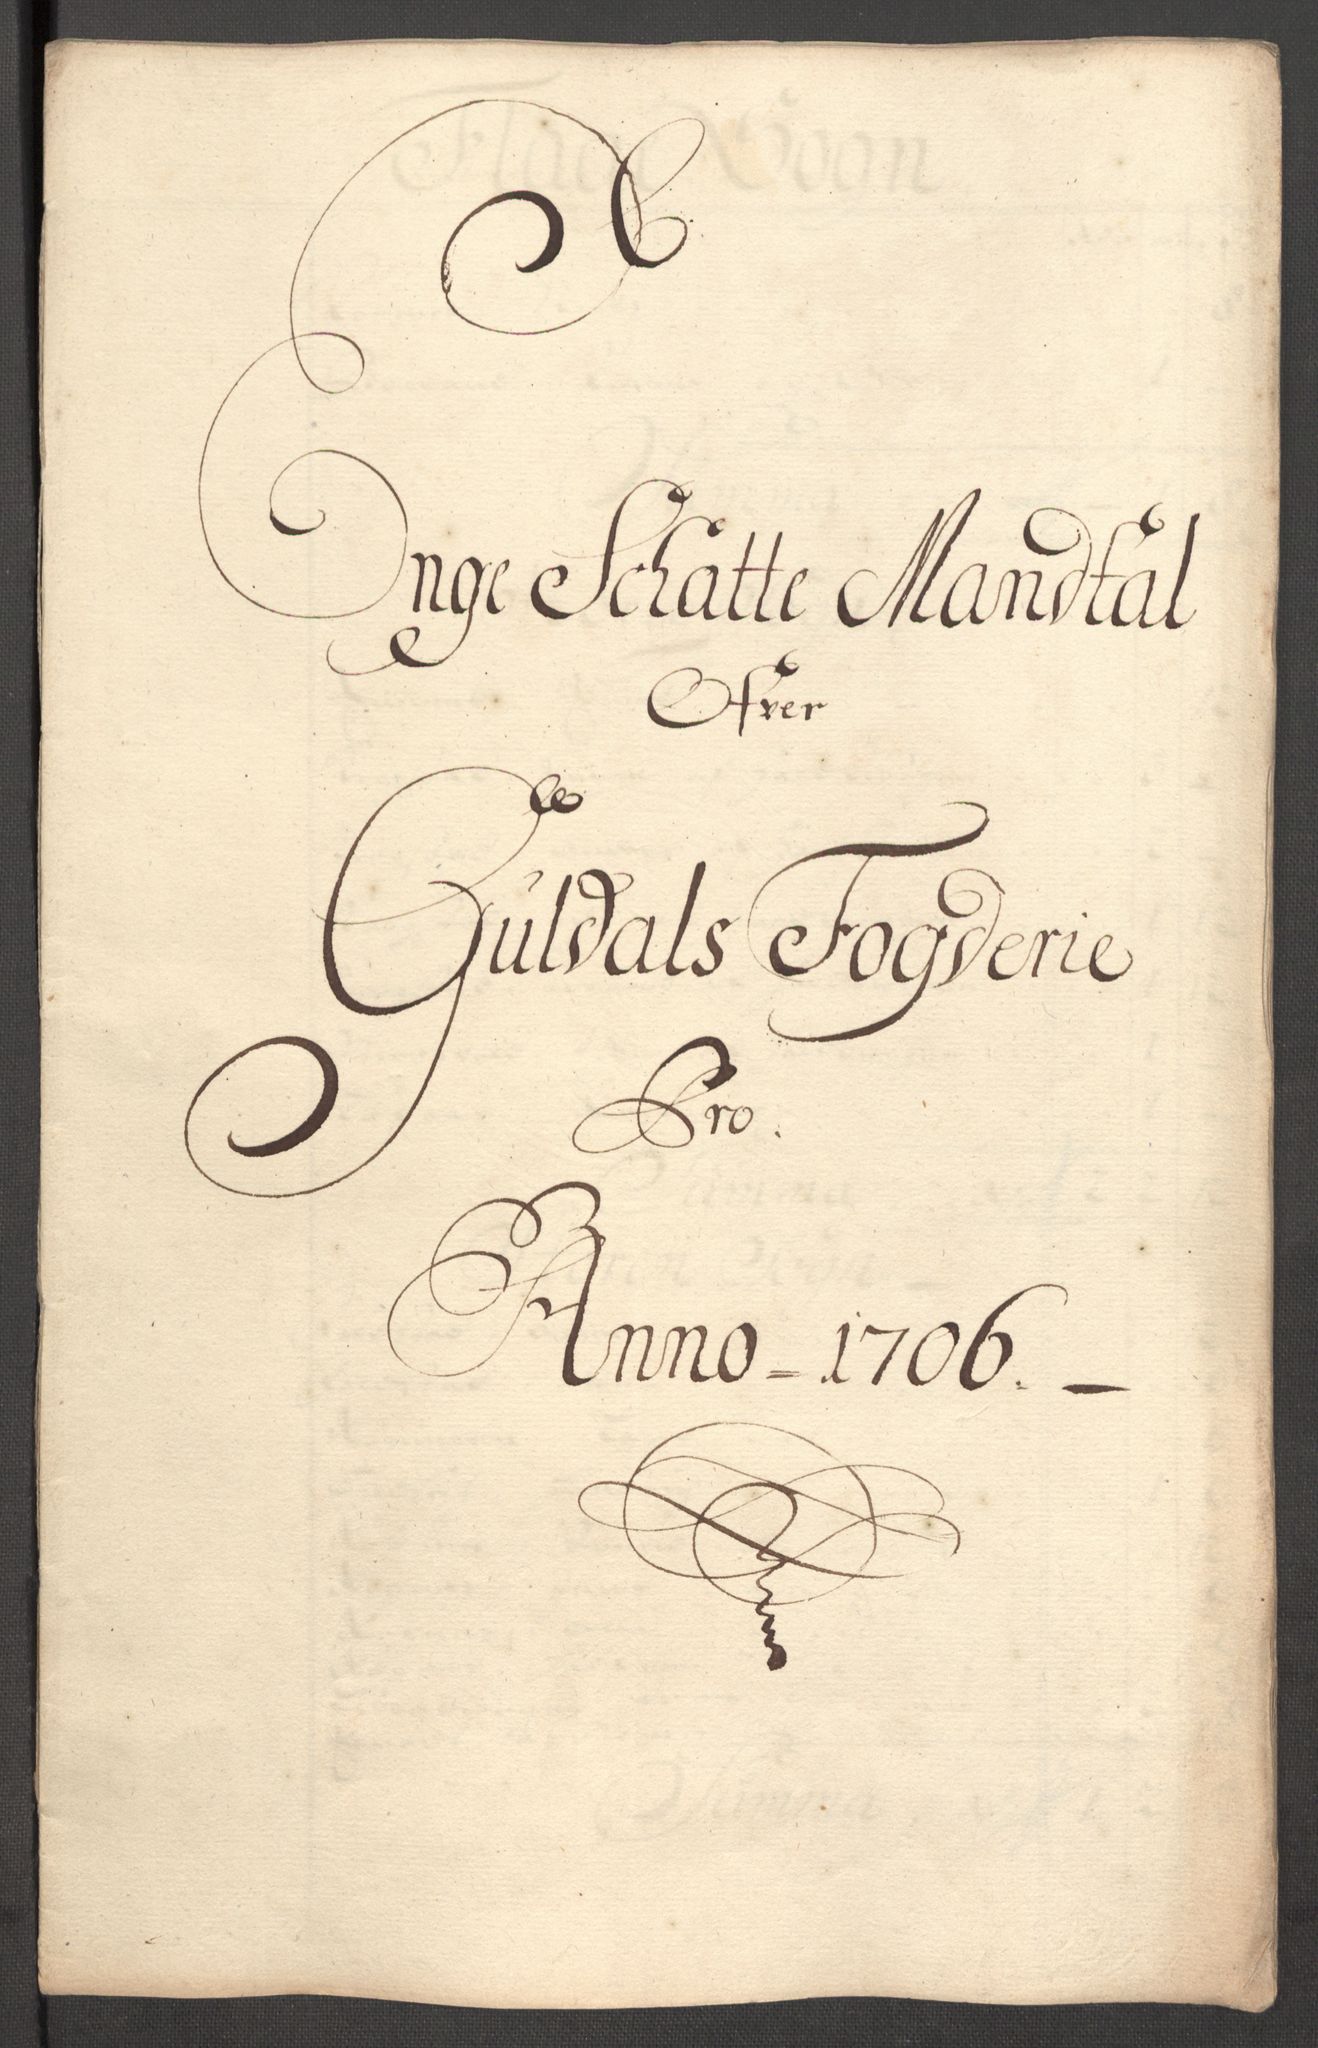 Enge Schatte Mandtal
Ofver
Guldals Fogderie
Pro.
Anno = 1706. –